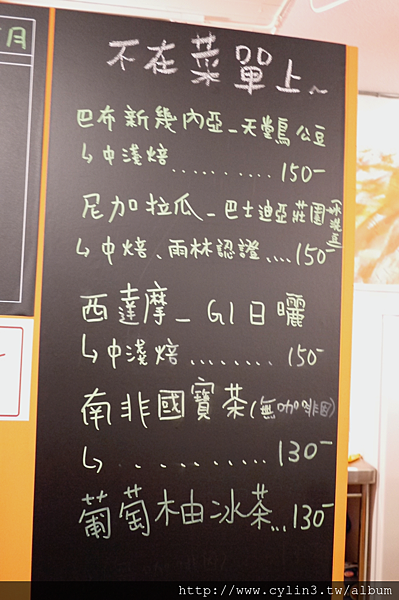 月
不在菜單上~
巴布新幾內亞－天堂鳥公豆
↳中淺焙.............150-
尼加拉瓜－巴士迪亞莊園(水洗豆)
↳中焙、雨林認證.....150-
西達摩－G1日曬
↳中淺焙.........150-
南非國寶茶(無咖啡因)
↳............130-
葡萄柚冰茶...130-
http://www.cylin3.tw/album